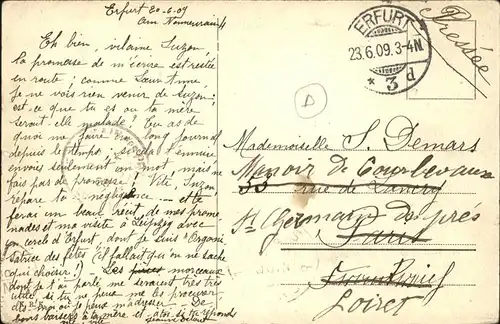 Erfurt 20-6-09
Eh bien, vilaine Suzon,
la promesse de m'écrire est restée
en route; comme Sœur Anne
je ne vois rien venir de Suzon;
est-ce que tu es ou ta mère
serait elle malade? Tu as de
quoi me faire long journal
depuis le temps, si cela t'ennuie
envoie seulement un mot, mais ne
fais pas de promesse! Vite, Suzon
répare ta négligence — et te
ferai un beau récit de mes prome
nades et ma visite à Leipzig avec
un cercle d'Erfurt, dont je suis l'organi
satrice des fêtes (il fallait que l'on ne sache
qui choisir!) — Les morceaux
dont je t'ai parlé me seraient très très
utile si tu peux me les procurer
peux m'adresser. De
bons baisers à ta mère et à toi si tu réponds
vite
ERFURT
23.6.09.3-4N.
* 3 d
Pressée
Mademoiselle S. Demars
Manoir de Courbevaux
33 rue de Lancry
St Germain des prés
Paris
Loiret